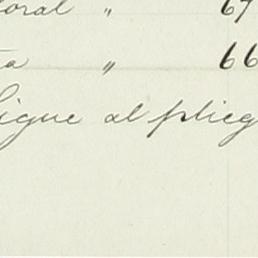 oral " 67
ta " 66
igue al plieg